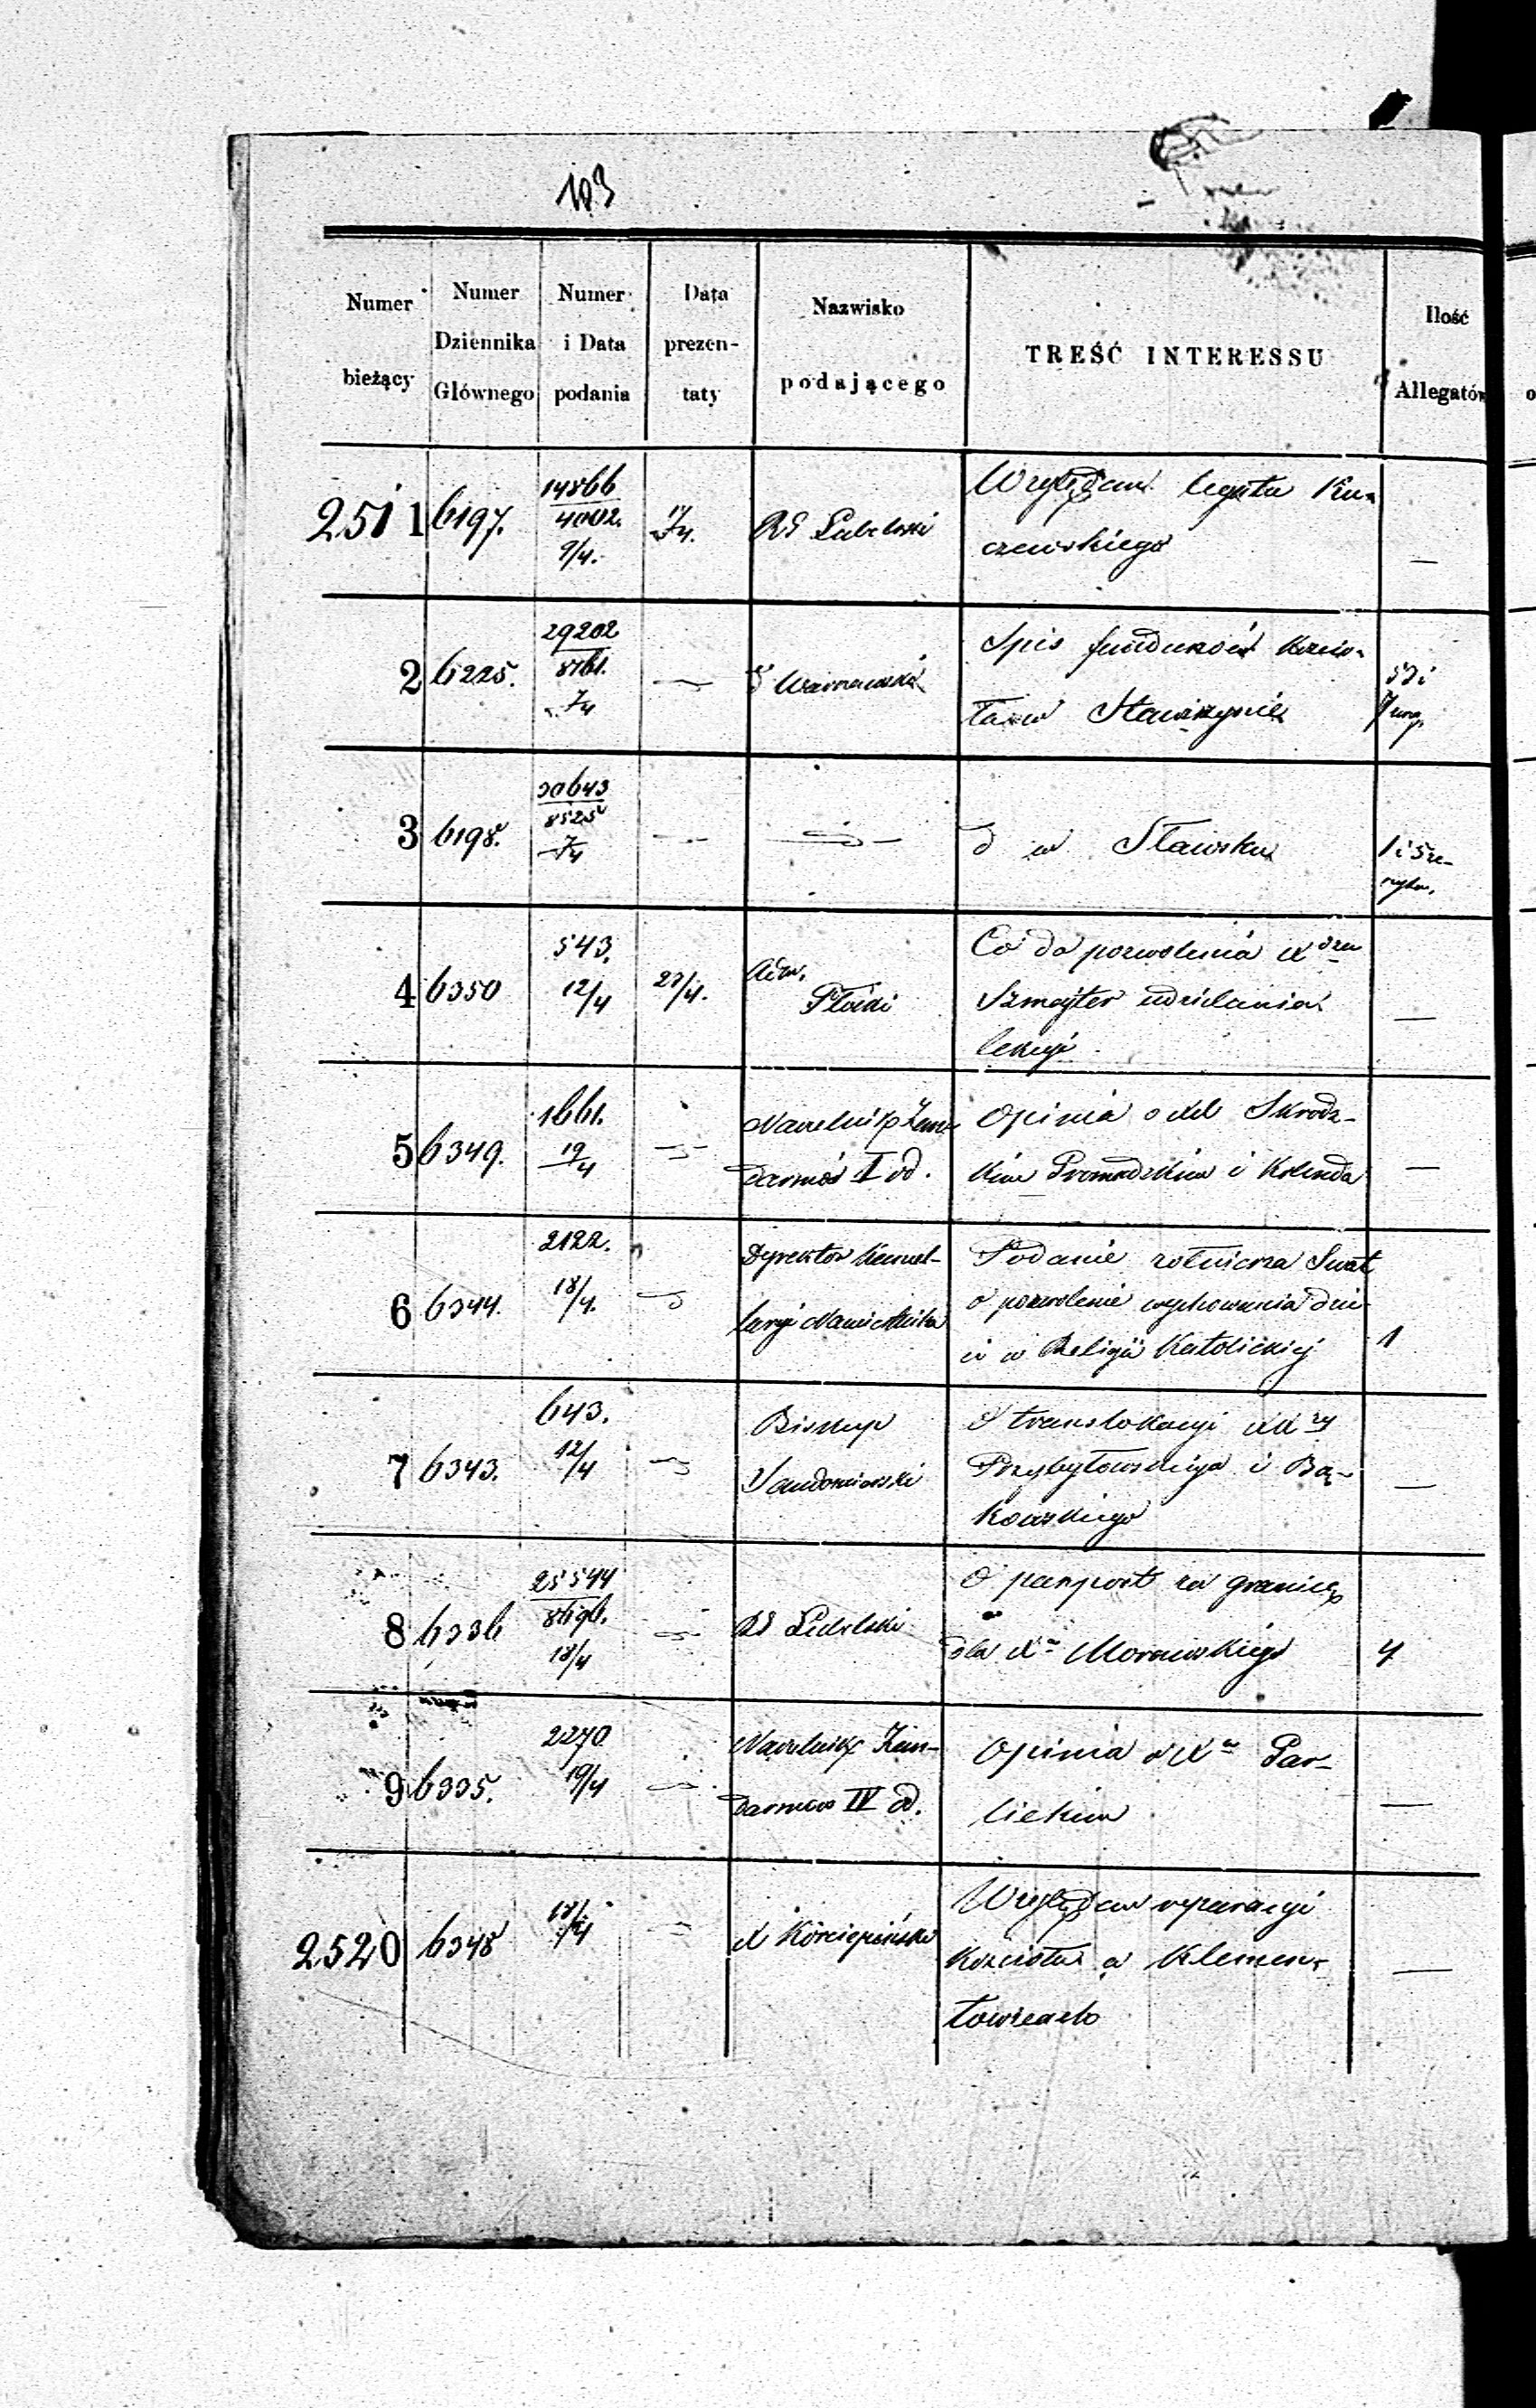 103
Numer bieżący
Numer Dziennika Głównego
Numer i Data podania
Data prezen- taty
Nazwisko podającego
TREŚĆ INTERESSU
Ilość Allegatów
2511 6197. 14866
4002. 9/4. 17/4. RG Lubelski
Względem legatu Ku-
czewskiego —
2 6225. 29202
8761. 7/4 — d Warszawski
Spis funduszów Kościo-
ła w
3 6198. 30643
8525 7/4 — —
d w Sławsku
4 6350 543.
12/4 23/4. Adm.
Płocki
Co do pozwolenia X
Szmajter udzielania
lekcyi —
5 6349. 1661.
19/4 — Naczelnik Żan-
darmów I od.
Opinia o XX Skrodz-
kim i Kolenda —
6 6344. 2122.
18/4. d Dyrektor Kancel-
laryi Namiestnika
Podanie żołnierza
o pozwolenie wychowania dzie-
ci w Religii Katolickiej 1
7 6343. 643.
12/4 — Biskup
Sandomierski
O translokacyi XX
Przybyłowskiego i Bą-
kowskiego —
8 6336 25544
8696. 18/4 — RG Lubelski
O paszport za granicę
dla Xa Morawskiego 4
9 6335. 2270
19/4 — Naczelnik Żan-
darmów IV od.
Opinia o Xu Par-
—
2520 6348 18/4 — X
Względem reparacyi
Kościoła w Klemen-
towicach —